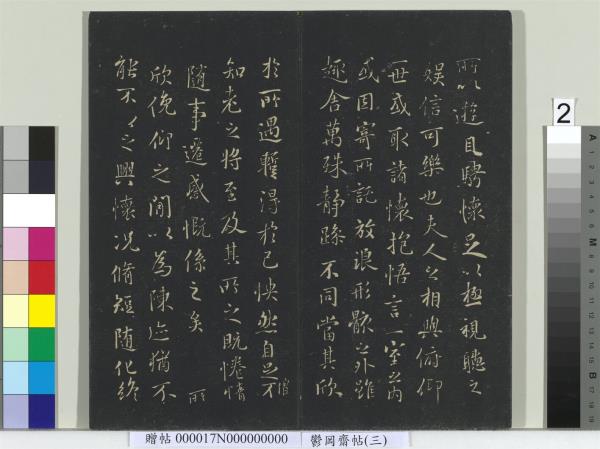 所以遊目騁懷足以極視聽之
娛信可樂也夫人之相與俯仰
一世或取諸懷抱悟言一室之內
或因寄所託放浪形骸之外雖
趣舍萬殊靜躁不同當其欣
於所遇蹔得於己怏然自足不
知老之將至及其所之既惓情
隨事遷感慨係之矣 所
欣俛仰之間以為陳迹猶不
能不以之興懷況脩短隨化終
2
贈帖 000017N000000000 鬱岡齋帖(三)
A 1 2 3 4 5 6 M 8 9 10 11 12 13 14 15 B 17 18 19